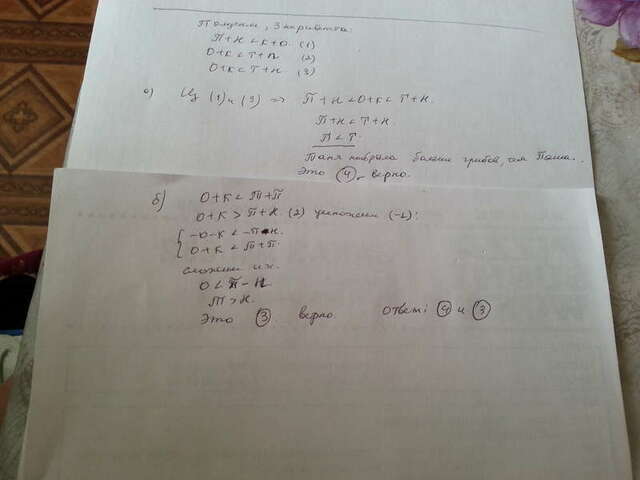 Получим, 3 неравенства:
П+Н < К+О. (1)
О+К < Т+П (2)
О+К < Т+Н (3)
а) Из (1) и (3) => П+Н < О+К < Т+Н.
П+Н < Т+Н.
П < Т.
Таня набрала больше грибов, чем Паша.
Это (4) - верно.
б) О+К < Т+П
О+К > П+Н. (2) умножим (-1):
{-О-К < -П-Н.
О+К < Т+П.
сложим их.
0 < Т - Н
Т > Н.
Это (3) верно. Ответ: (4) и (3)